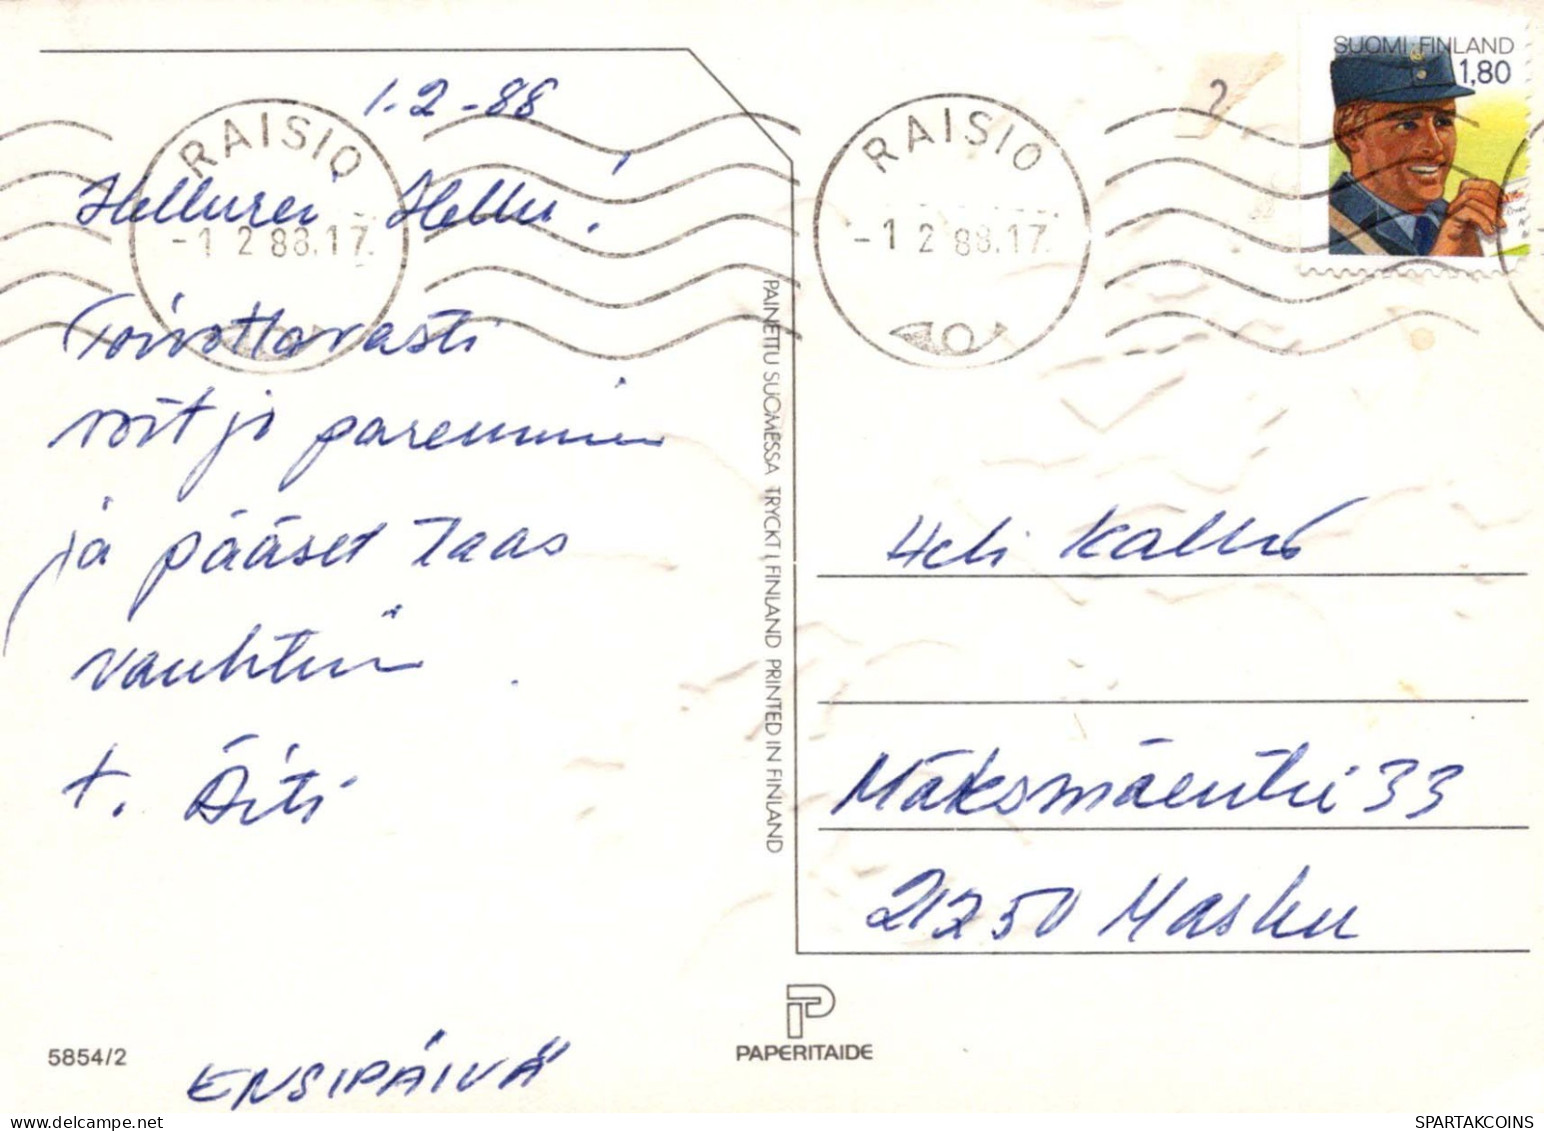 SUOMI FINLAND
1,80
RAISIO
-1 2 88.17
RAISIO
-1 2 88.17
1.2 -88
Hellurei Hellu!
Toivottavasti
voit jo paremmin
ja pääset taas
vauhtiin
t. Äiti
ENSIPÄIVÄ
PAINETTU SUOMESSA TRYCKT I FINLAND PRINTED IN FINLAND
Heli Kallio
Maksmäentie 33
21250 Masku
5854/2
PAPERITAIDE
SPARTAKCOINS